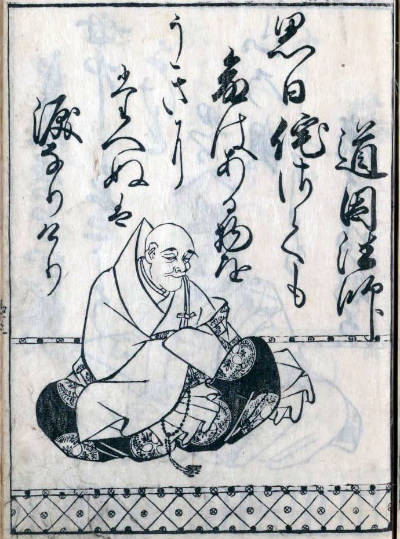 道因法師
思日侘さても
命はある物を
うきに
たへぬは
涙なりけり